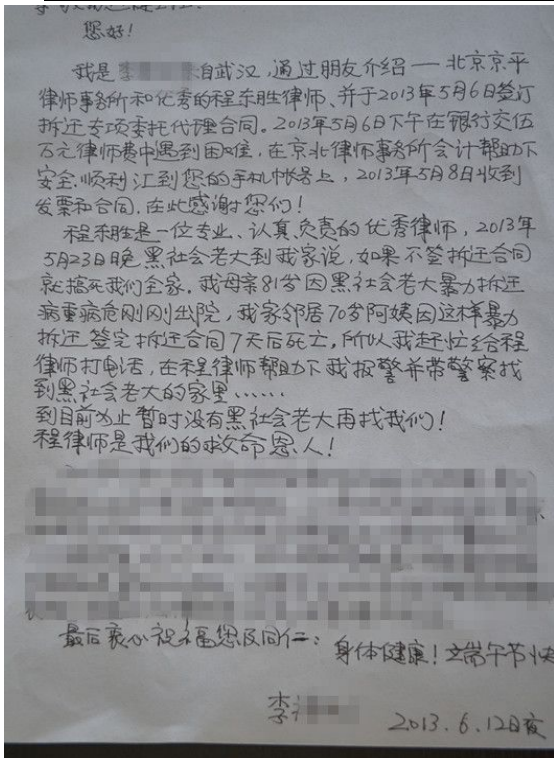 您好!
我是李 来自武汉,通过朋友介绍——北京京平
律师事务所和优秀的程东胜律师、并于2013年5月6日签订
拆迁专项委托代理合同。2013年5月6日下午在银行交伍
万元律师费中遇到困难,在京北律师事务所会计帮助下
安全顺利汇到您的手机帐号上,2013年5月8日收到
发票和合同.在此感谢您们!
程东胜是一位专业、认真负责的优秀律师,2013年
5月23日晚黑社会老大到我家说,如果不签拆迁合同
就搞死我们全家。我母亲81岁因黑社会老大暴力拆迁
病重病危刚刚出院,我家邻居70岁阿姨因这样暴力
拆迁签定拆迁合同7天后死亡,所以我赶忙给程
律师打电话,在程律师帮助下我报警并带警察找
到黑社会老大的家里……
到目前为止暂时没有黑社会老大再找我们!
程律师是我们的救命恩人!
最后衷心祝福您及同仁:身体健康!端午节快
李
2013.6.12日夜